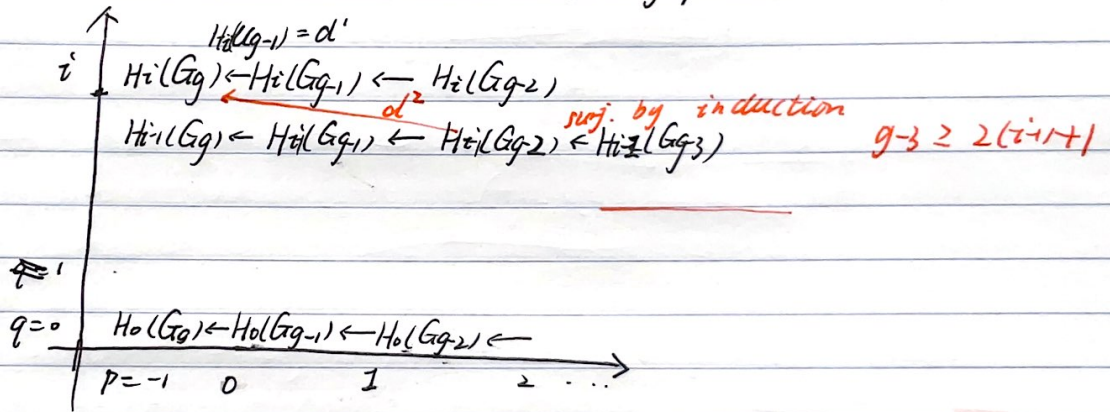 Hi(ιg-1) = d'
i Hi(Gg) ← Hi(Gg-1) ← Hi(Gg-2)
d² surj. by induction
Hi-1(Gg) ← Hi-1(Gg-1) ← Hi-1(Gg-2) ← Hi-1(Gg-3) g-3 ≥ 2(i-1)+1
q=0 H0(Gg) ← H0(Gg-1) ← H0(Gg-2) ←
p=-1 0 1 2 ...